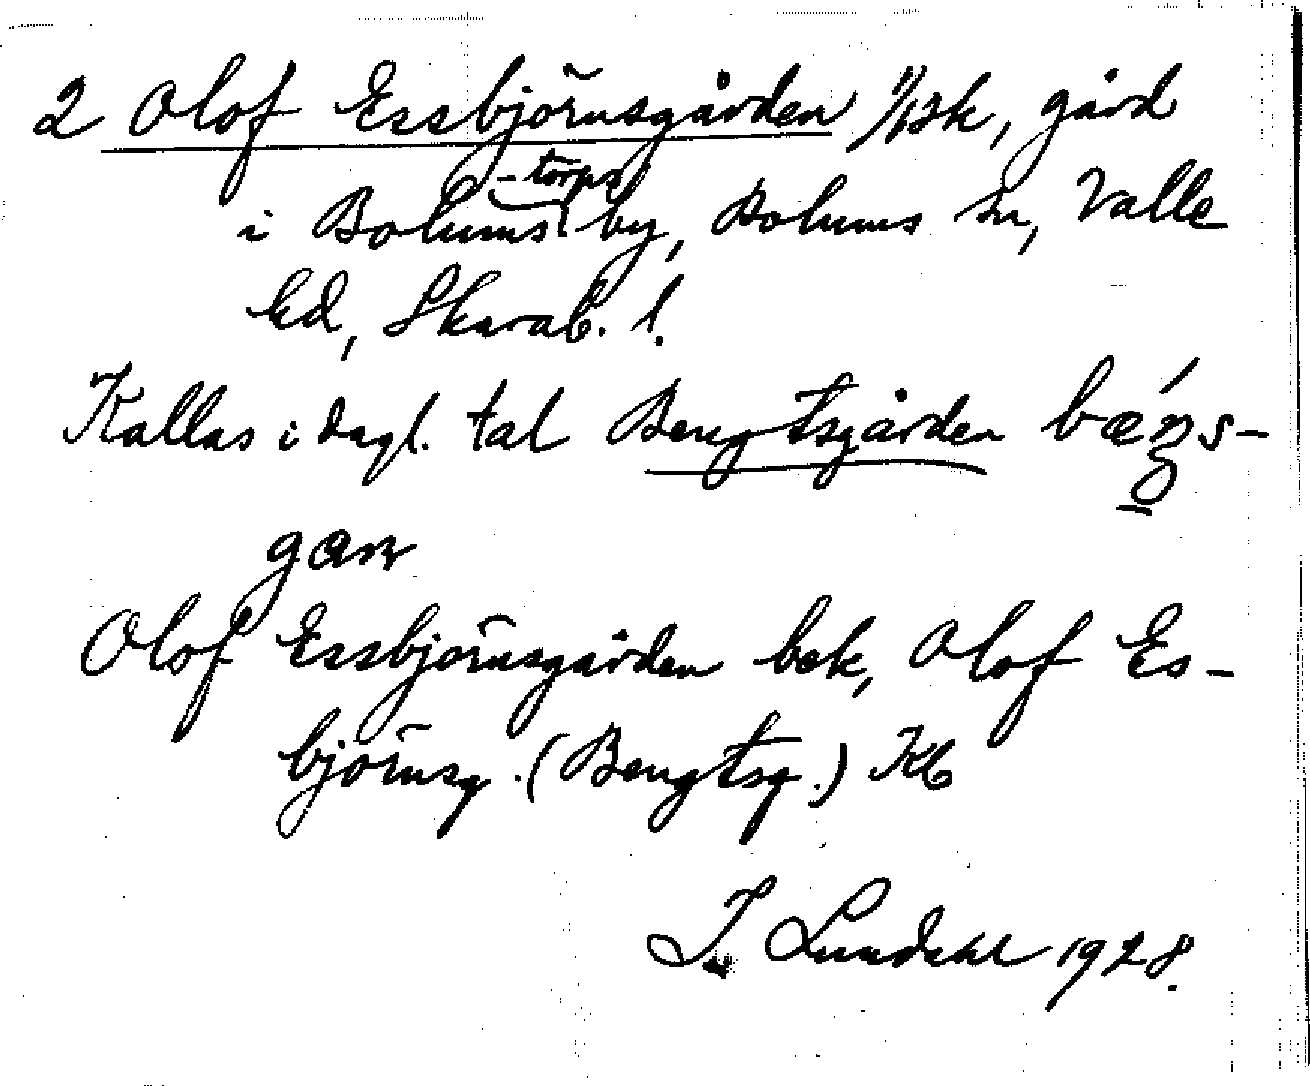 2 Olof Essbjörnsgården 1/1 sk, gård
i Bolums -torps by, Bolums sn, Valle
hd, Skarab. l.
Kallas i dagl. tal Bengtsgården bæ´ŋs-
gan
Olof Essbjörnsgården bek, Olof Es-
björnsg. (Bengtsg.) Kb
I. Lundahl 1928.